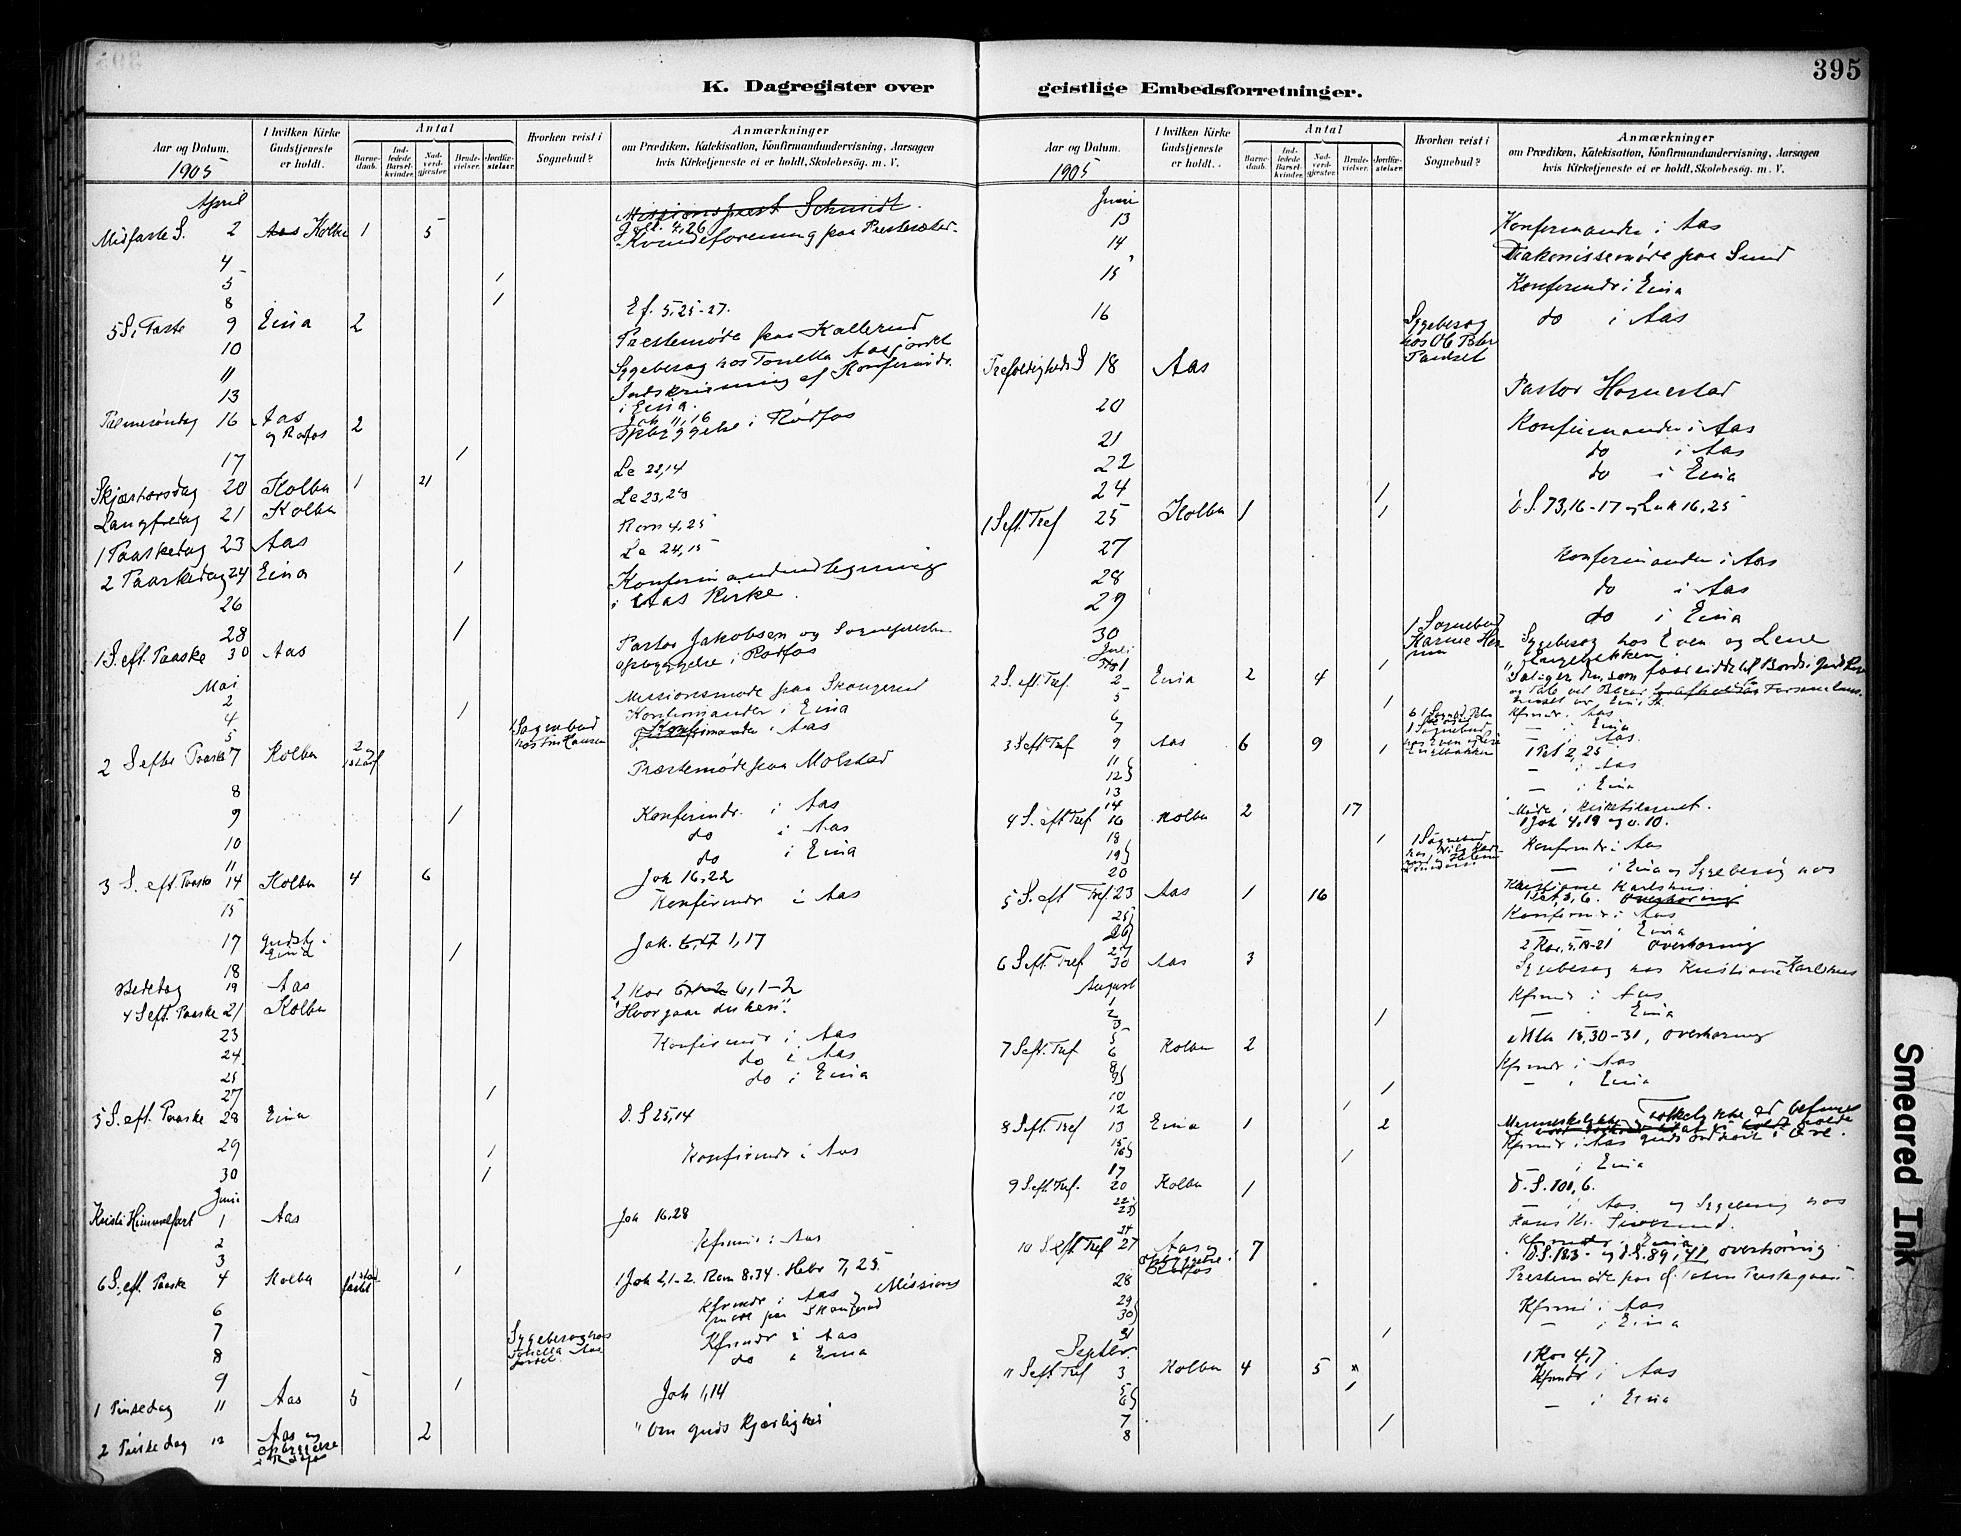 395
K. Dagregister over geistlige Embedsforretninger.
Aar og Datum.
1905
I hvilken Kirke Gudstjeneste er holdt.
Antal
Barnedaab.
Indledede Barselkvinder.
Nadverdgjester.
Brudevielser.
Jordfæstelser.
Hvorhen reist i Sognebud?
Anmærkninger
om Prædiken, Katekisation, Konfirmandundervisning, Aarsagen
hvis Kirketjeneste ei er holdt, Skolebesøg. m. V.
April
Midfaste S. 2 Aas Kolbu 1 5 Missionsprest Schmidt.
Gal. 4,26
4 Kvindeforening paa Prestesæter
5 1
8 1
5 S. i Faste 9 Eina 2 Ef. 5,25-27.
10 Prestemøde paa Kallerud
11 Sygebesøg hos Tonetta Aasjordet
13 Indskrivning af Konfirmdr.
i Eina.
Palmesøndag 16 Aas 2 Joh 11,16
og Rødfos Opbyggelse i Rødfos
17 1
Skjærtorsdag 20 Kolbu 1 21 Lc 22,14
Langfredag 21 Kolbu Lc 23,28
1 Paaskedag 23 Aas Rom 4,25
2 Paaskedag 24 Eina Lc 24,15
26 1 Konfirmandudlegning
i Aas Kirke.
28 1
1 S. eft. Paaske 30 Aas Pastor Jakobsen og Sognepresten
opbyggelse i Rødfos
Mai
2 Missionsmøde paa Skangerud
4 1 Konfirmander i Eina
5 1 Sognebud Konfirmander i Aas
2 S efter Paaske 7 Kolbu 2 og
8 Præstemøde paa Molstad
9 1 Konfirmdr. i Aas
10 do i Aas
11 do i Eina
3 S. eft. Paaske 14 Kolbu 4 6 Joh 16,22
15 Konfirmdr i Aas
17 gudstj. i
Eina
18 1 Jak. 1,17
Bededag 19 Aas
4 S eft. Paaske 21 Kolbu 2 Kor 6,1-2
23 "Hvor gaar du hen".
24 Konfirmdr i Aas
25 do i Aas
27 1 do i Eina
5 S. eft. Paaske 28 Eina D. S 25,14
29 1 Konfirmdr i Aas
30 1
Juni
Kristi Himmelfart 1 Aas Joh 16.28
2 Kfrmdr i Aas
3 1
6 S. eft. Paaske 4 Kolbu 1 Joh 2,1-2. Rom 8.34. Hebr 7,25.
6 Kfrmdr i Aas og Missions
møde paa Skangerud
7 Sygebesøg hos Kfrmdr i Aas
8 Tonetta Aas do i Eina
jordet.
9 1
1 Pinsedag 11 Aas 5 Joh 1,14
2 Pinsedag 12 Aas og 2 "Om guds Kjærlighed"
opbyggelse
i Rødfos
Aar og Datum.
1905
I hvilken Kirke Gudstjeneste er holdt.
Antal
Barnedaab.
Indledede Barselkvinder.
Nadverdgjester.
Brudevielser.
Jordfæstelser.
Hvorhen reist i Sognebud?
Anmærkninger
om Prædiken, Katekisation, Konfirmandundervisning, Aarsagen
hvis Kirketjeneste ei er holdt, Skolebesøg. m. V.
Juni
13 Konfirmander i Aas
14 Diakonissemøde paa Sund
15 Konfirmdr i Eina
16 Sygebesøg do i Aas
Trefoldigheds S 18 Aas Pastor Hognestad
20 Konfirmander i Aas
21 do i Aas
22 do i Eina
24 1
1 S eft. Tref 25 Kolbu 1 1 D. S. 73,16-17 og Luk 16,25
27 Konfirmander i Aas
28 do i Aas
29 do i Eina
30 1 Sognebud Sygebesøg hos Even og Lene
Juli
1 1
2 S. eft. Tref. 2 Eina 2 4
5 1
6 Kfrmdr. i Aas
7 1 Sognebud — i Eina
3 S eft Tref 9 Aas 6 9 1 1 Pet 2,25
11 — i Aas
12
13 — i Eina
14 Møde i Kirketilsynet.
4 S. eft Tref 16 Kolbu 2 17 1 Joh 4,19 og v. 10.
18 1 1 Sognebud Konfrmdr i Aas
19
20 — i Eina og Sygebesøg hos
Kristiane Karlshus.
5 S. eft Tref. 23 Aas 1 16
25 Konfirmdr i Aas
26 — i Eina
27
6 S eft. Tref 30 Aas 3 2 Kor. 5,19-21 overhøring
August
Sygebesøg hos Kristiane Karlshus
1 Kfrmdr i Aas
2 — i Eina
3 1
5
7 S eft. Tref 6 Kolbu 2 Mtth 15,30-31, overhøring
8 Kfrmdr i Aas
9 — i Eina
10 1
12 1
8 S eft. Tref 13 Eina 1 2
15 Kfrmdr i Aas
16 i Eina
17 1
9 S eft. Tref. 20 Kolbu 1 D. S. 101,6.
22 — i Aas og Sygebesøg hos
23
24 Kfrmdr i Eina
10 S. eft Tref 27 Aas og 7 D.S. 123 og D.S. 89, overhøring
opbyggelse i
Rødfos
28 Prestemøde paa
29 Kfrmdr i Aas
30 — i Eina
31 1
Septbr.
11 S eft Tref 3 Kolbu 4 5 1 Kor 4,7
5 1 Kfrmdr i Aas
6 — i Eina
7 1
8
Smeared Ink